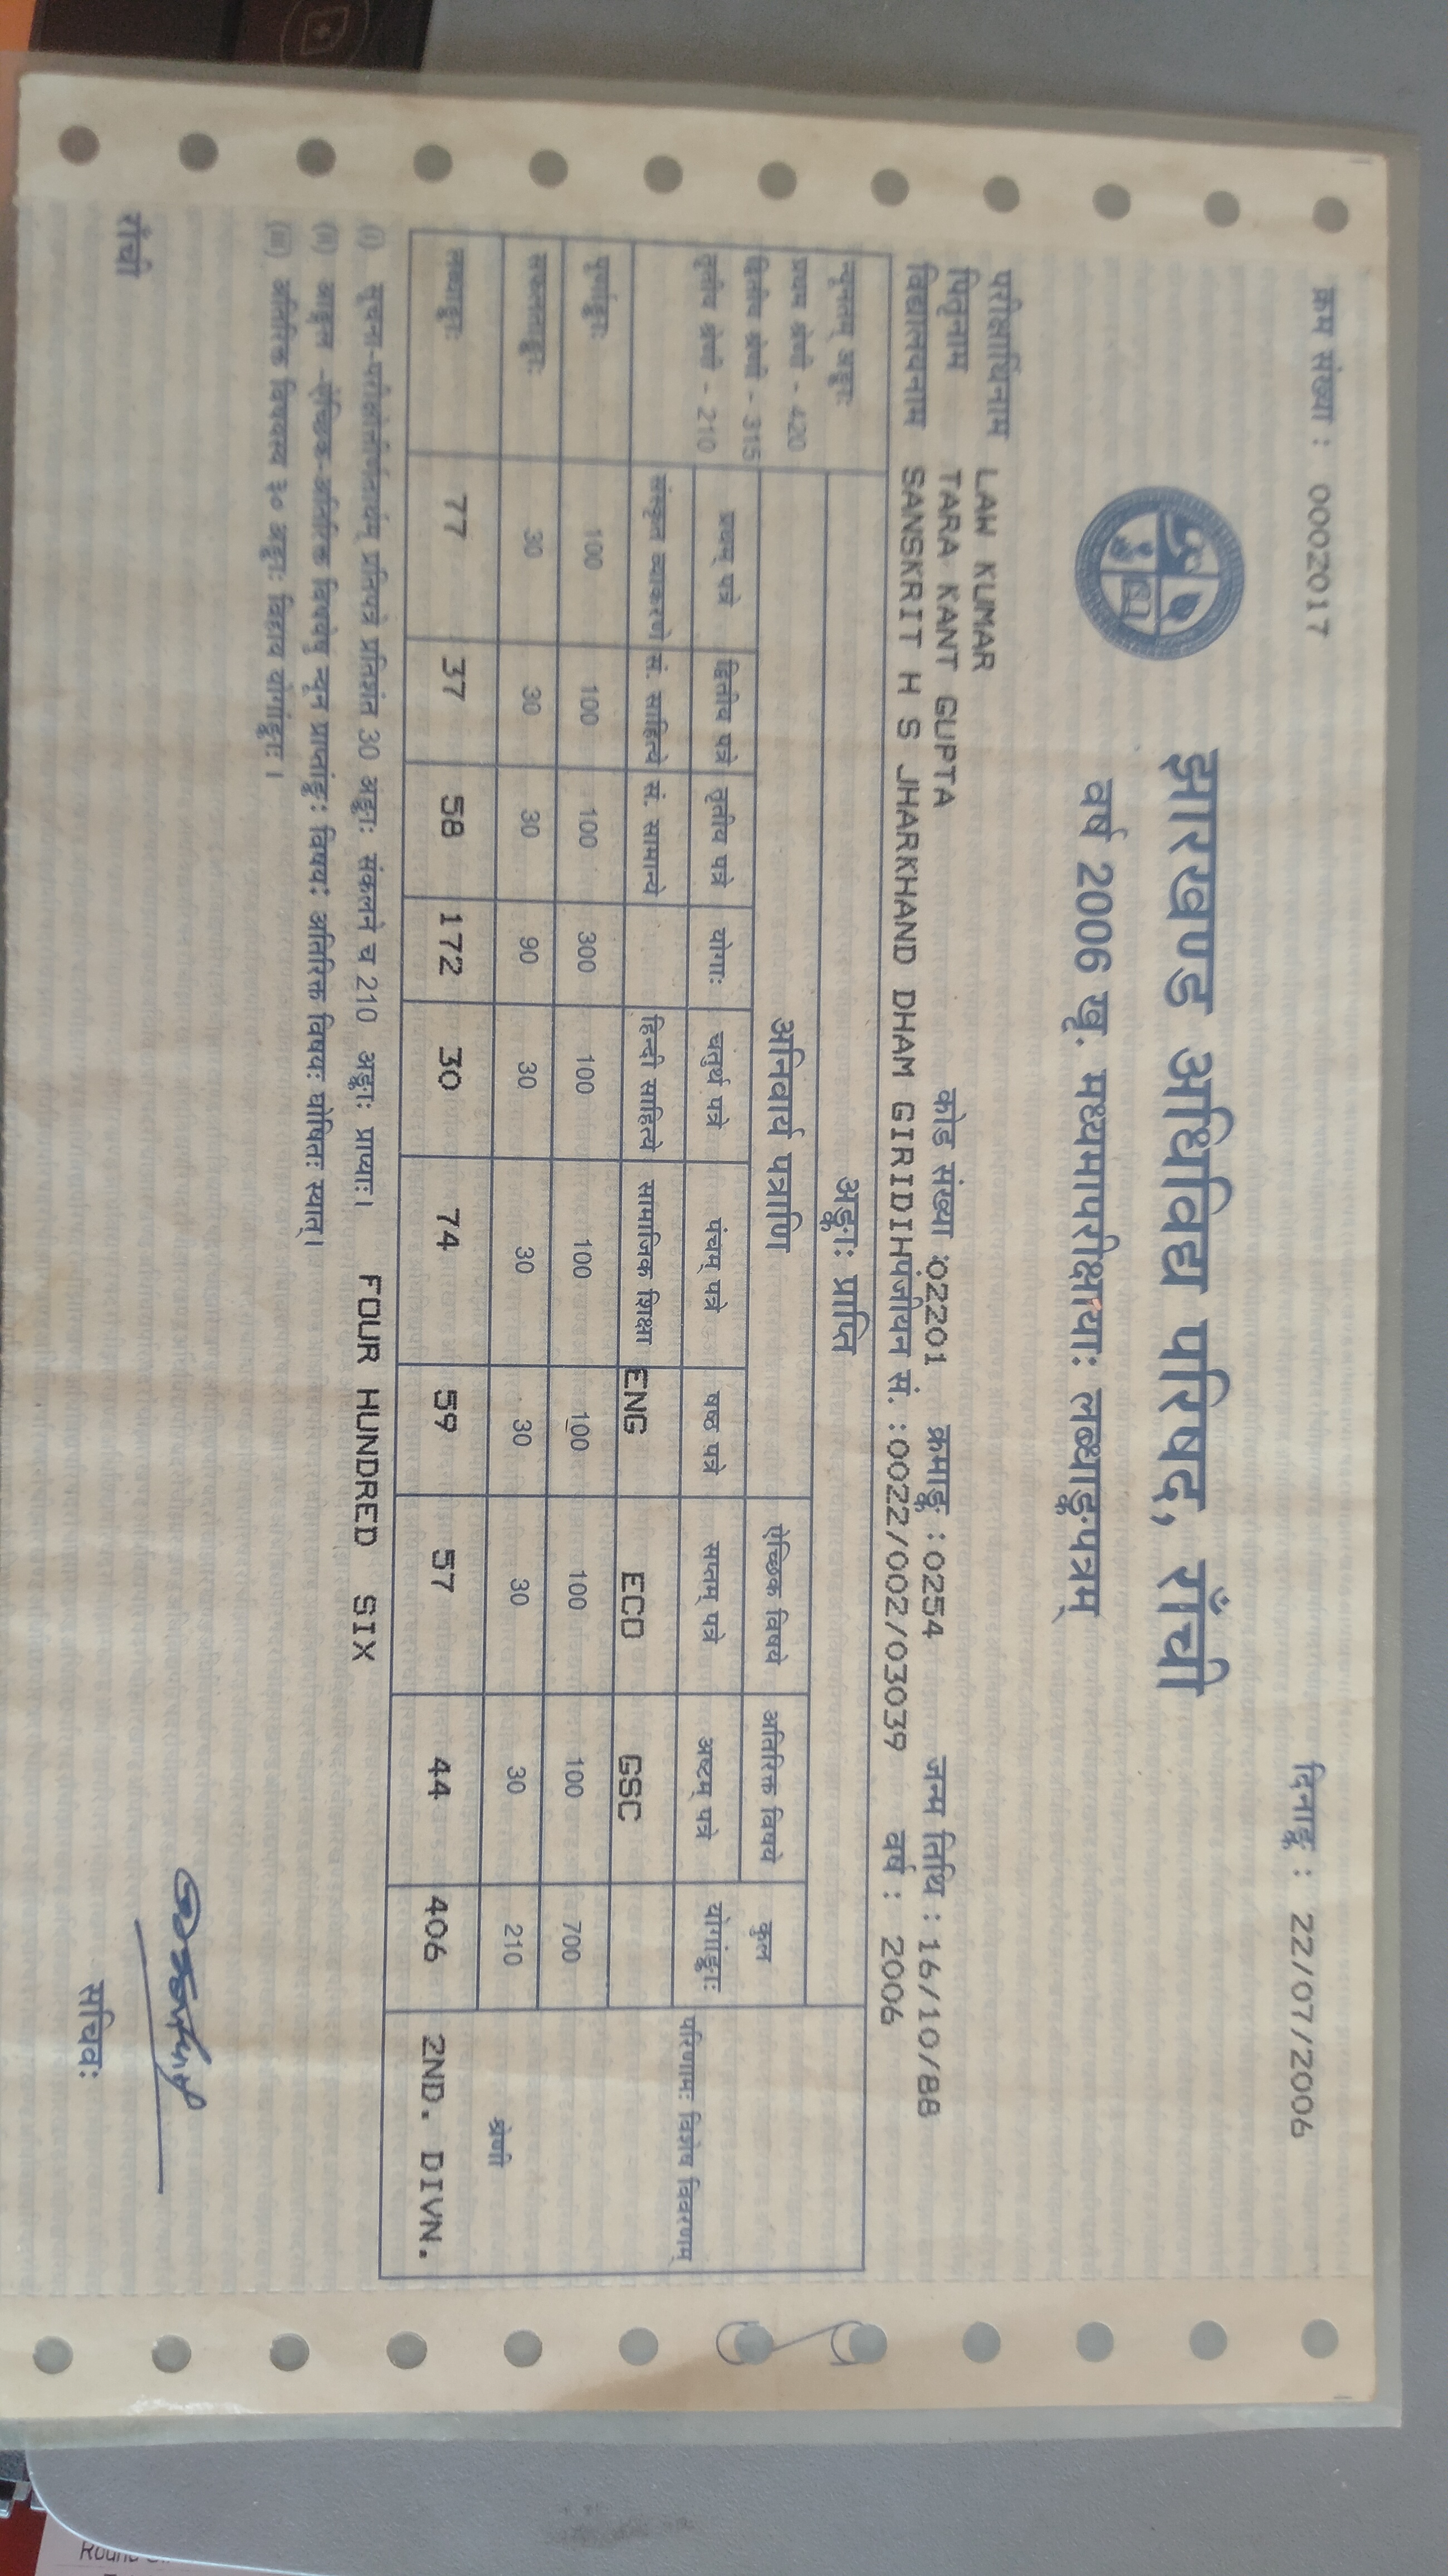 क्रम संख्या : 0002017
दिनाङ्क : 22/07/2006
झारखण्ड अधिविद्य परिषद, राँची
वर्ष 2006 खृ. मध्यमापरीक्षायाः लब्धाङ्कपत्रम्
परीक्षार्थिनाम LAW KUMAR
पितृनाम TARA KANT GUPTA कोड संख्या :02201 क्रमाङ्क :0254 जन्म तिथि : 16/10/88
विद्यालयनाम SANSKRIT H S JHARKHAND DHAM GIRIDIH पंजीयन सं. :0022/002/03039 वर्ष : 2006
न्यूनतम् अङ्काः
प्रथम श्रेणी - 420
द्वितीय श्रेणी - 315
तृतीय श्रेणी - 210
अङ्काः प्राप्ति
अनिवार्य पत्राणि ऐच्छिक विषये अतिरिक्त विषये कुल योगांङ्काः परिणामः विशेष विवरणम्
प्रथम् पत्रे द्वितीय पत्रे तृतीय पत्रे योगाः चतुर्थ पत्रे पंचम् पत्रे षष्ठ पत्रे सप्तम् पत्रे अष्टम् पत्रे
संस्कृत व्याकरणे सं. साहित्ये सं. सामान्ये हिन्दी साहित्ये सामाजिक शिक्षा ENG ECO GSC
पूर्णाङ्काः 100 100 100 300 100 100 100 100 100 700
सफलताङ्काः 30 30 30 90 30 30 30 30 30 210 श्रेणी
लब्धाङ्काः 77 37 58 172 30 74 59 57 44 406 2ND. DIVN.
(i) सूचना-परीक्षोत्तीर्णतार्थम् प्रतिपत्रे प्रतिशंत 30 अङ्काः संकलने च 210 अङ्काः प्राप्याः। FOUR HUNDRED SIX
(ii) आङ्गल -ऐच्छिक-अतिरिक्त विषयेषु न्यून प्राप्तांङ्कः विषयः अतिरिक्त विषयः घोषितः स्यात्।
(iii) अतिरिक्त विषयस्य ३० अङ्काः विहाय योगांङ्काः।
राँची
सचिवः